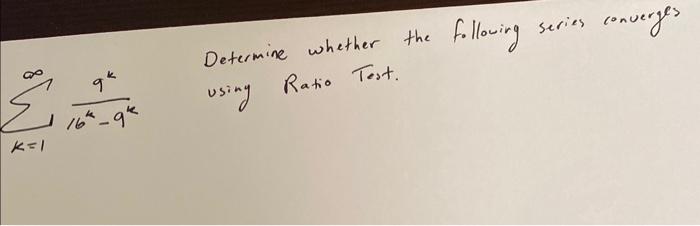 ∞
Σ 9^k / (16^k - 9^k)
k=1
Determine whether the following series converges
using Ratio Test.